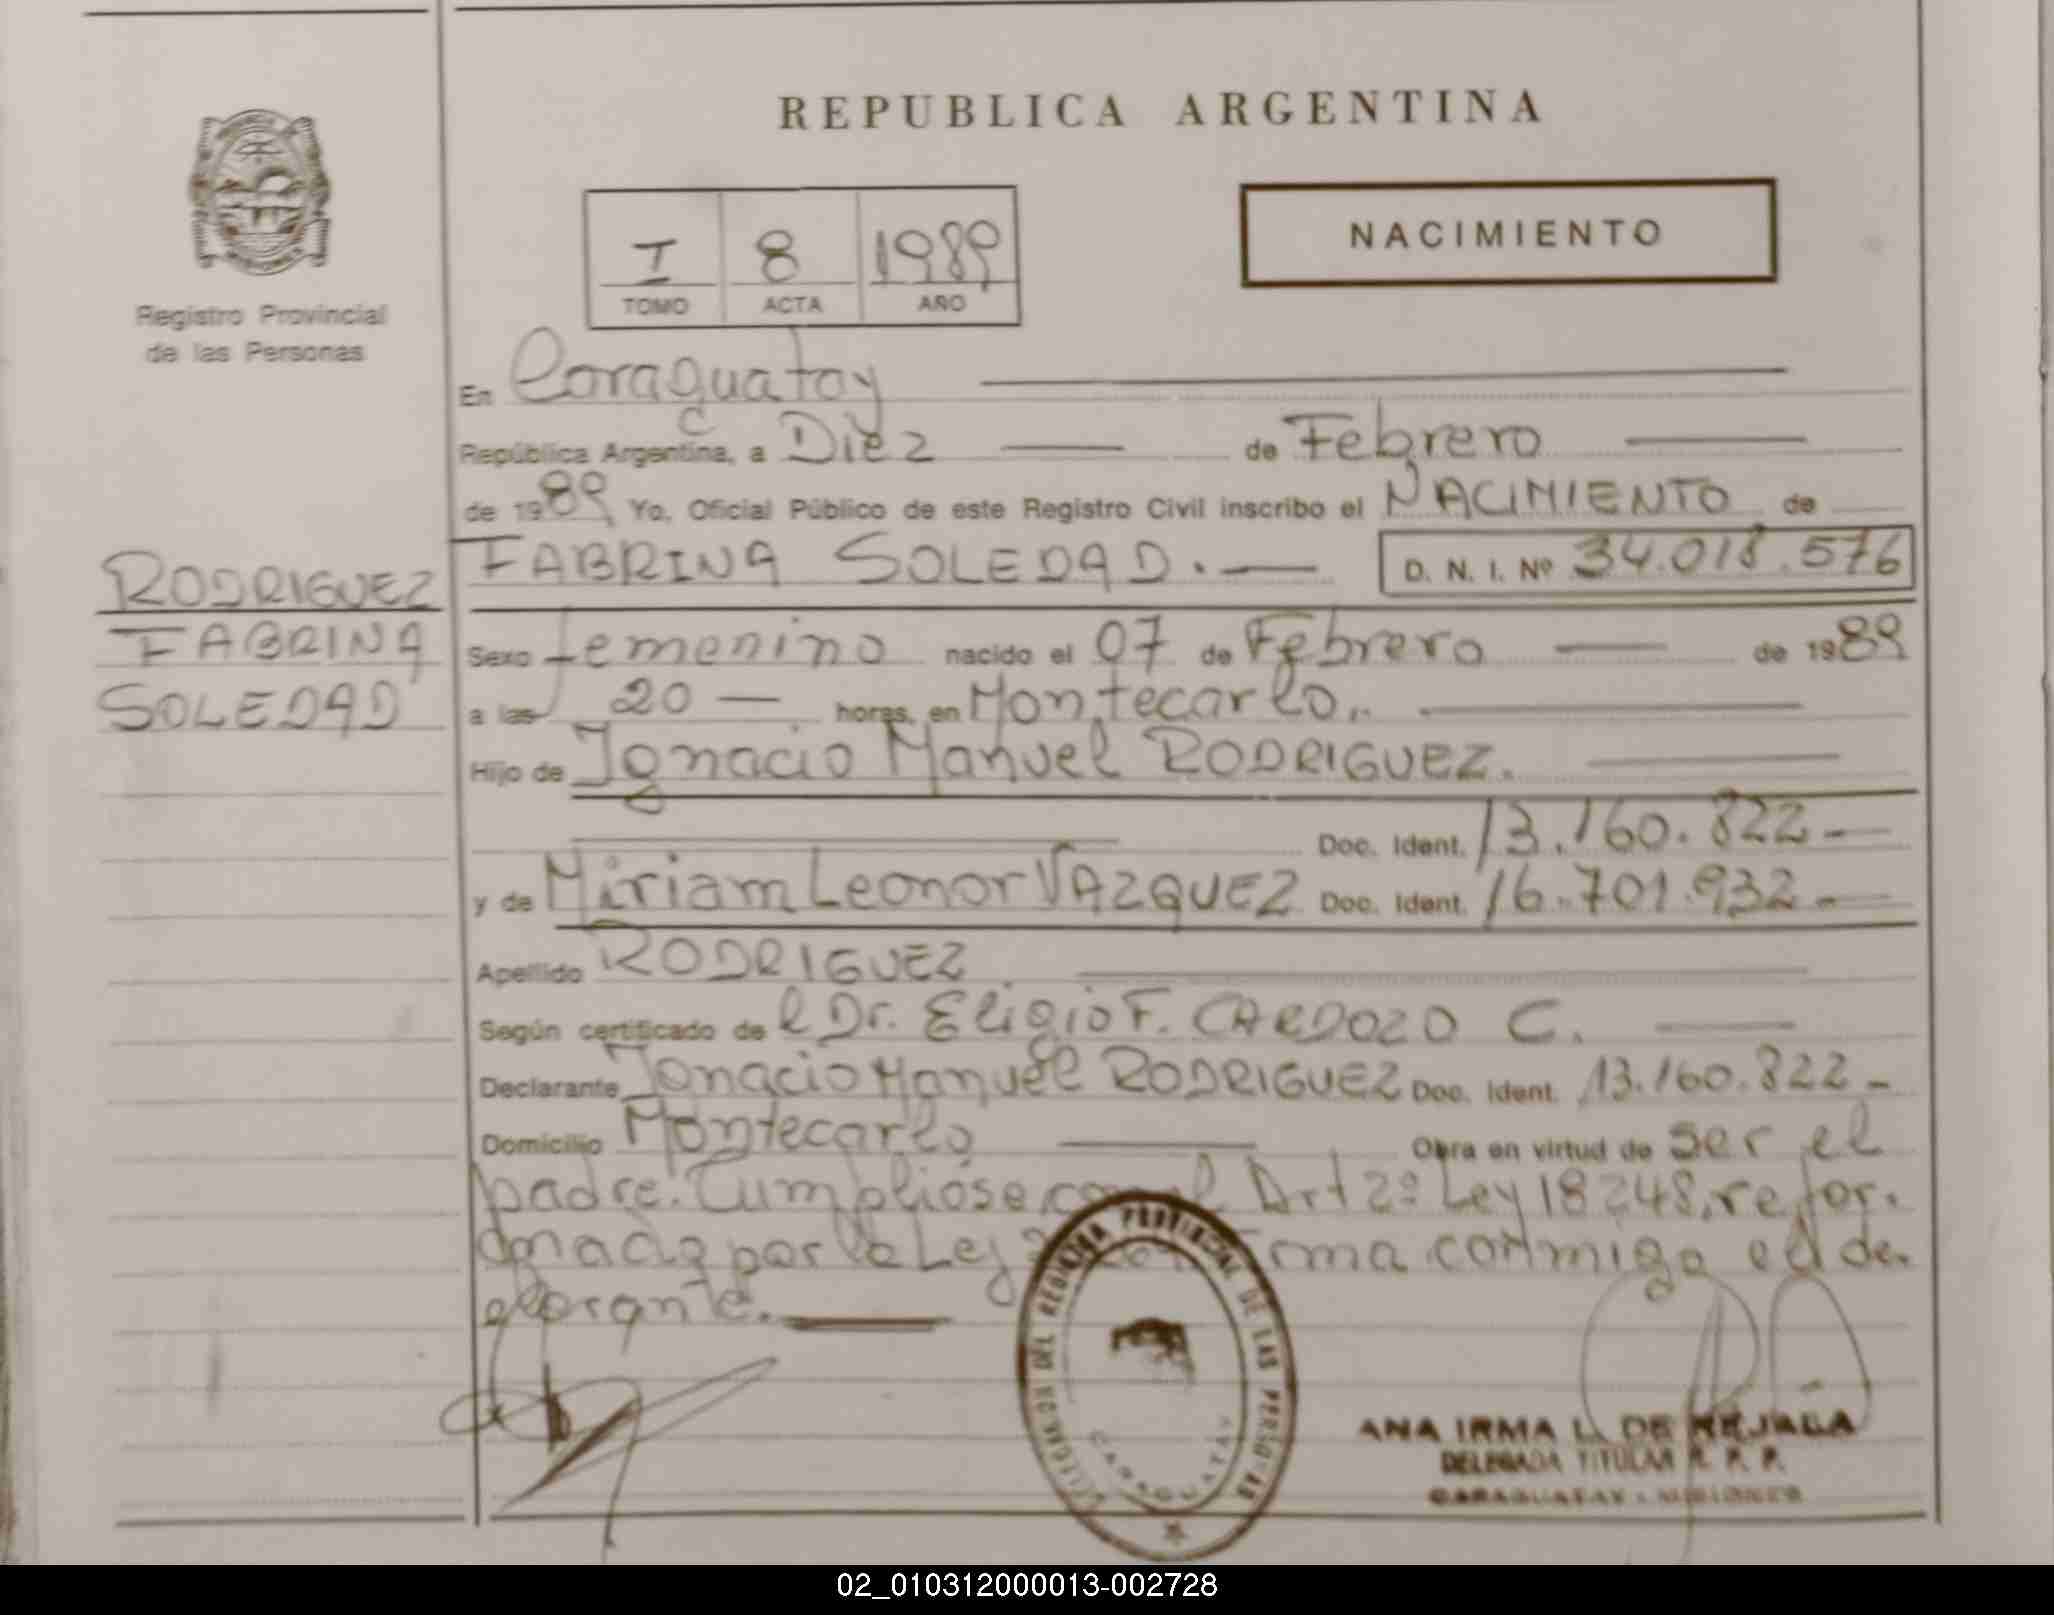 REPUBLICA ARGENTINA
NACIMIENTO
I 8 1989
TOMO ACTA AÑO
Registro Provincial
de las Personas
En Caraguatay
República Argentina, a Diez de Febrero
de 1989 Yo, Oficial Público de este Registro Civil inscribo el NACIMIENTO de
FABRINA SOLEDAD.— D. N. I. Nº 34.018.576
RODRIGUEZ
FABRINA
SOLEDAD
Sexo femenino nacido el 07 de Febrero — de 1989
a las 20 — horas, en Montecarlo.
Hijo de Ignacio Manuel RODRIGUEZ.
Doc. Ident. 13.160.822-
y de Miriam Leonor VAZQUEZ Doc. Ident. 16.701.932-
Apellido RODRIGUEZ
Según certificado de l Dr. Eligio F. CARDOZO C.
Declarante Ignacio Manuel RODRIGUEZ Doc. Ident. 13.160.822-
Domicilio Montecarlo Obra en virtud de ser el
padre. Cumplióse con el Art 2º Ley 18248, refor.
mada por la Ley conmigo el de.
clarante.
DEL REGISTRO PROVINCIAL DE LAS PERSONAS
CARAGUATAY
ANA IRMA L. DE
DELEGADA TITULAR R. P. P.
CARAGUATAY - MISIONES
02_010312000013-002728